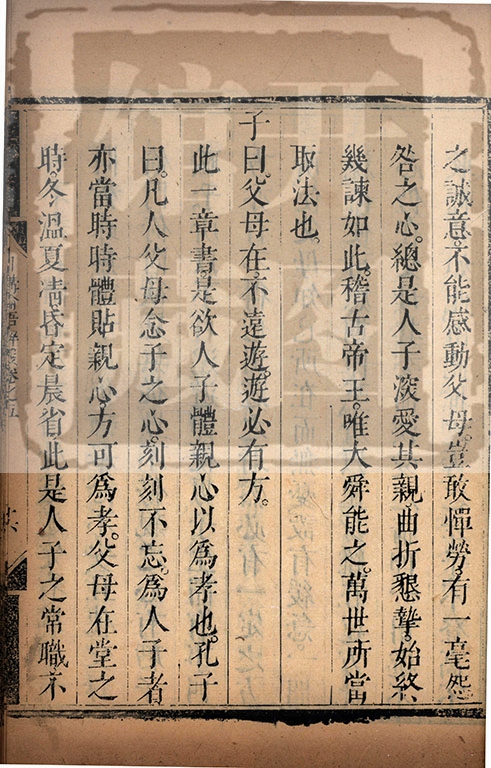 之誠意。不能感動父母。豈敢憚勞。有一毫怨
咎之心。總是人子深愛其親。曲折懇摯。始終
幾諫如此。稽古帝王。唯大舜能之。萬世所當
取法也。
子曰。父母在。不遠遊。遊必有方。
此一章書。是欲人子體親心以為孝也。孔子
曰。凡人父母念子之心。刻刻不忘。為人子者
亦當時時體貼親心。方可為孝。父母在堂之
時。冬溫夏凊。昏定晨省。此是人子之常職。不
日講四書解義卷之五
十六